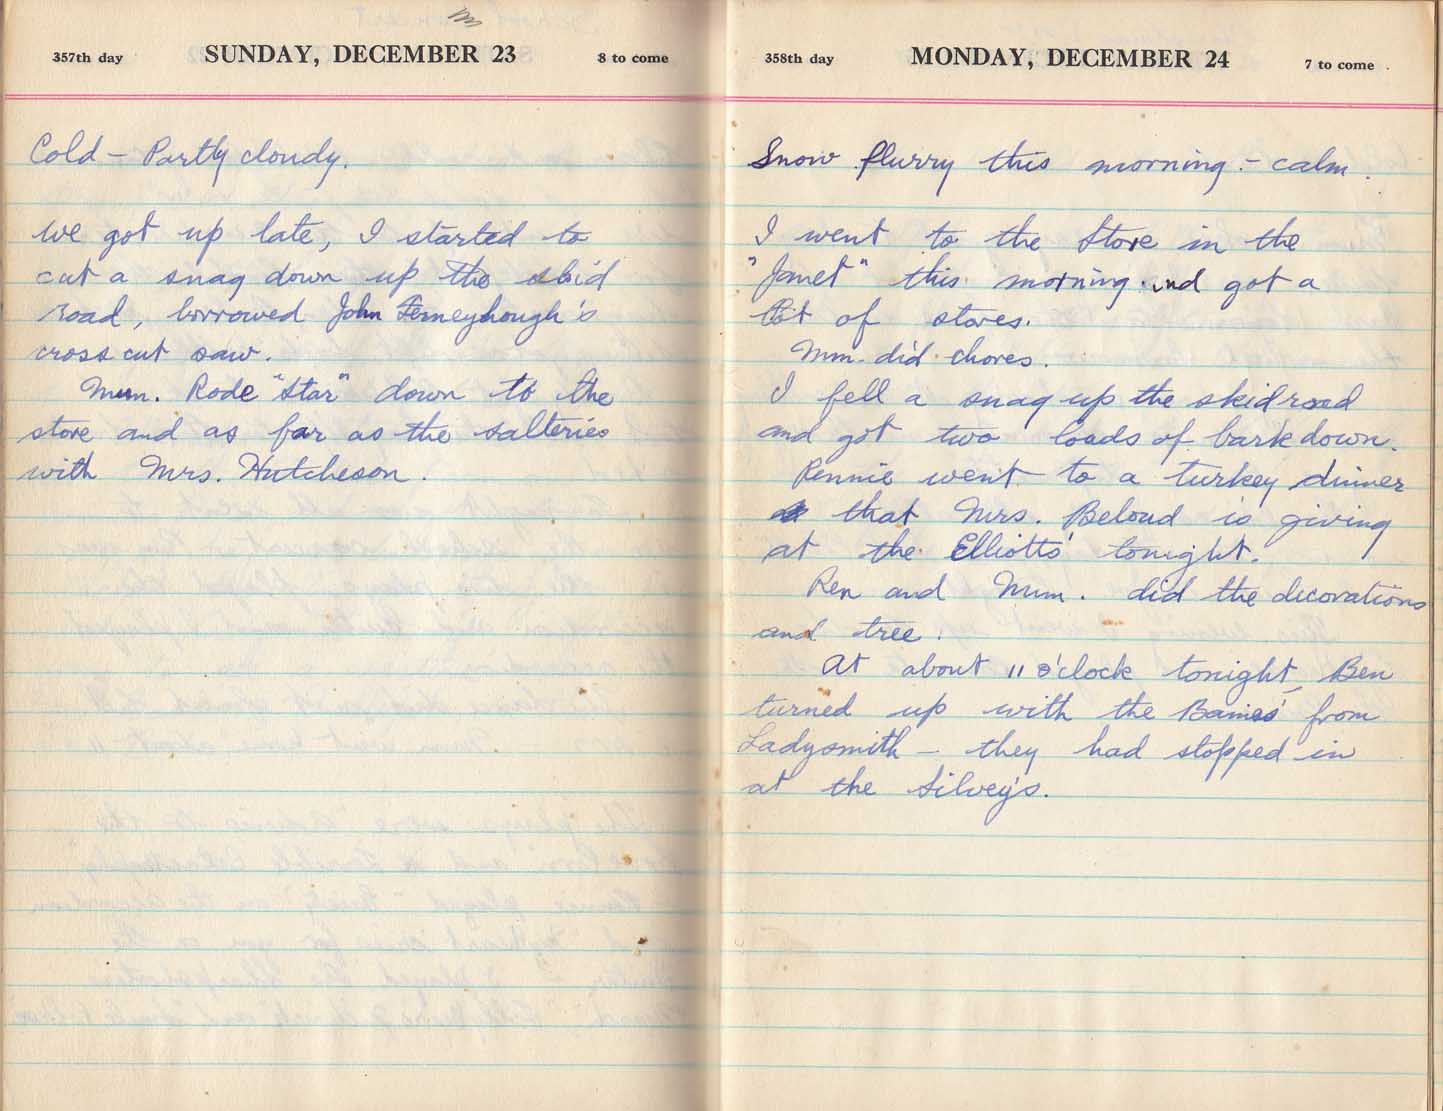 357th day SUNDAY, DECEMBER 23 8 to come
Cold - Partly cloudy.
We got up late, I started to
cut a snag down up the skid
road, borrowed John Ferneyhough's
cross cut saw.
Mum. Rode "Star" down to the
store and as far as the salteries
with Mrs. Hutcheson.
358th day MONDAY, DECEMBER 24 7 to come
Snow flurry this morning - calm.
I went to the Store in the
"Janet" this morning and got a
lot of stores.
Mum. did chores.
I fell a snag up the skidroad
and got two loads of bark down.
Rennie went to a turkey dinner
that Mrs. Beloud is giving
at the Elliotts' tonight.
Ren and Mum. did the decorations
and tree.
At about 11 o'clock tonight Ben
turned up with the from
Ladysmith - they had stopped in
at the Silvey's.